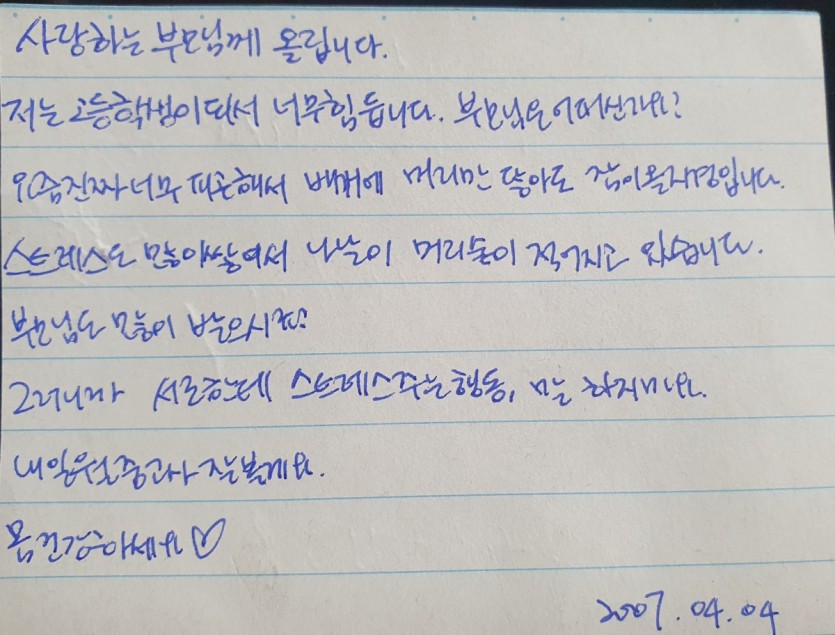 사랑하는 부모님께 올립니다.
저는 고등학생이되서 너무힘듭니다. 부모님은어떠신가요?
요즘진짜너무 피곤해서 베개에 머리만 닿아도 잠이올지경입니다.
스트레스도 많이쌓여서 나날이 머리숱이 적어지고 있습니다.
부모님도 많이 받으시죠?
그러니까 서로한테 스트레스주는행동, 말 하지마요.
내일월중고사 잘볼게요.
몸건강하세요♡
2007.04.04